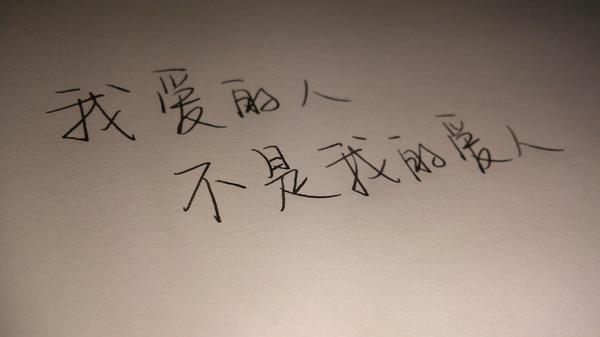 我爱的人
不是我的爱人